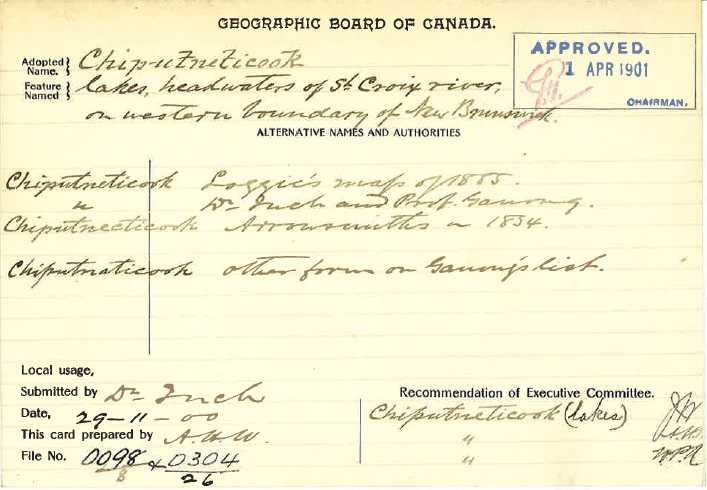 GEOGRAPHIC BOARD OF CANADA.
APPROVED.
1 APR 1901
CHAIRMAN.
Adopted Name. } Chiputneticook
Feature Named } lakes, headwaters of St. Croix river,
on western boundary of New Brunswick.
ALTERNATIVE NAMES AND AUTHORITIES
Chiputneticook Loggie's map of 1885.
" Dr. Inch and Prof. Ganong.
Chiputnecticook Arrowsmiths " 1834.
Chiputnaticook other form on Ganong's list.
Local usage,
Submitted by Dr. Inch
Date, 29-11-00
This card prepared by
File No. 0098/8 & 0304/26
Recommendation of Executive Committee.
Chiputneticook (lakes)
"
"
W.P.A